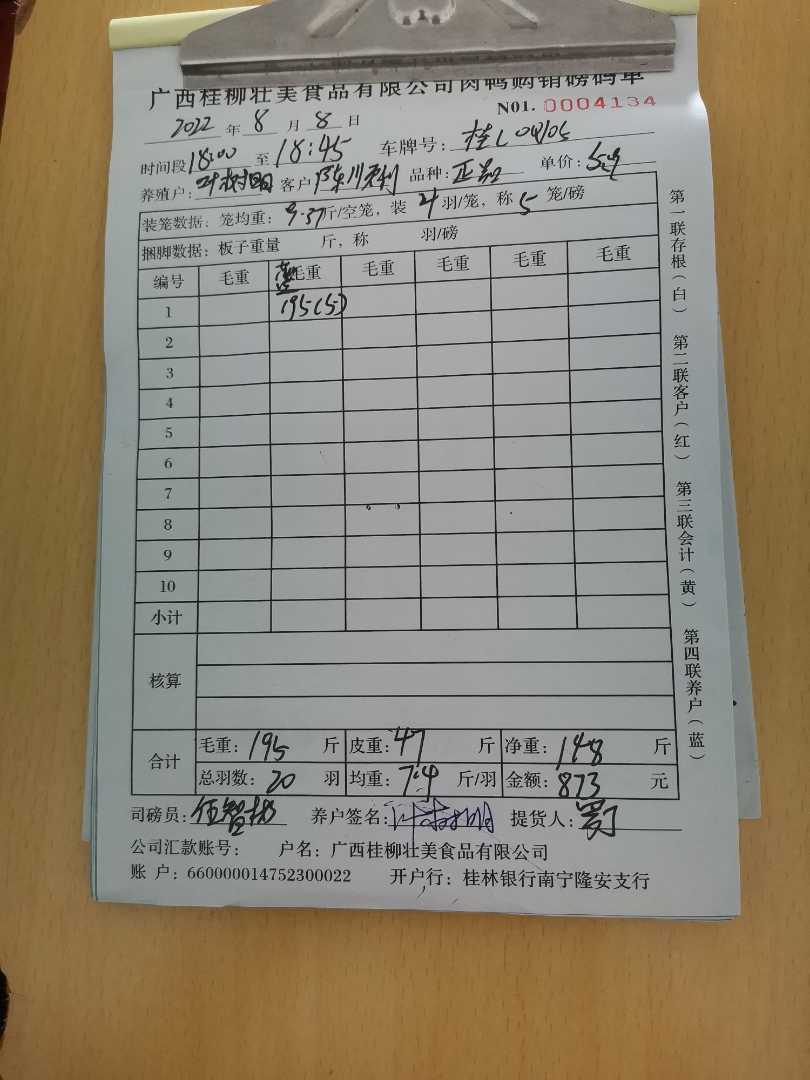 广西桂柳壮美食品有限公司肉鸭购销磅码单
NO1. 0004134
2022 年 8 月 8 日
时间段 18:00 至 18:45 车牌号:
养殖户: 叶树明 客户: 品种: 正品 单价:
装笼数据: 笼均重: 9.37 斤/空笼, 装 4 羽/笼, 称 5 笼/磅
捆脚数据: 板子重量 斤, 称 羽/磅
编号 毛重 毛重 毛重 毛重 毛重 毛重
1 195(5)
2
3
4
5
6
7
8
9
10
小计
核算
合计 毛重: 195 斤 皮重: 47 斤 净重: 148 斤
总羽数: 20 羽 均重: 7.4 斤/羽 金额: 873 元
司磅员: 养户签名: 提货人:
公司汇款账号: 户名: 广西桂柳壮美食品有限公司
账 户: 660000014752300022 开户行: 桂林银行南宁隆安支行
第一联存根(白) 第二联客户(红) 第三联会计(黄) 第四联养户(蓝)